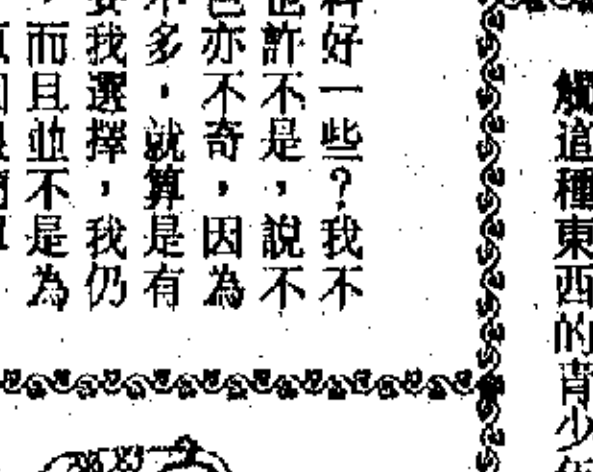 觸這種東西的青少
好一些?我不
許不是,說不
亦不奇,因為
多,就算是有
我選擇,我仍
而且並不是為